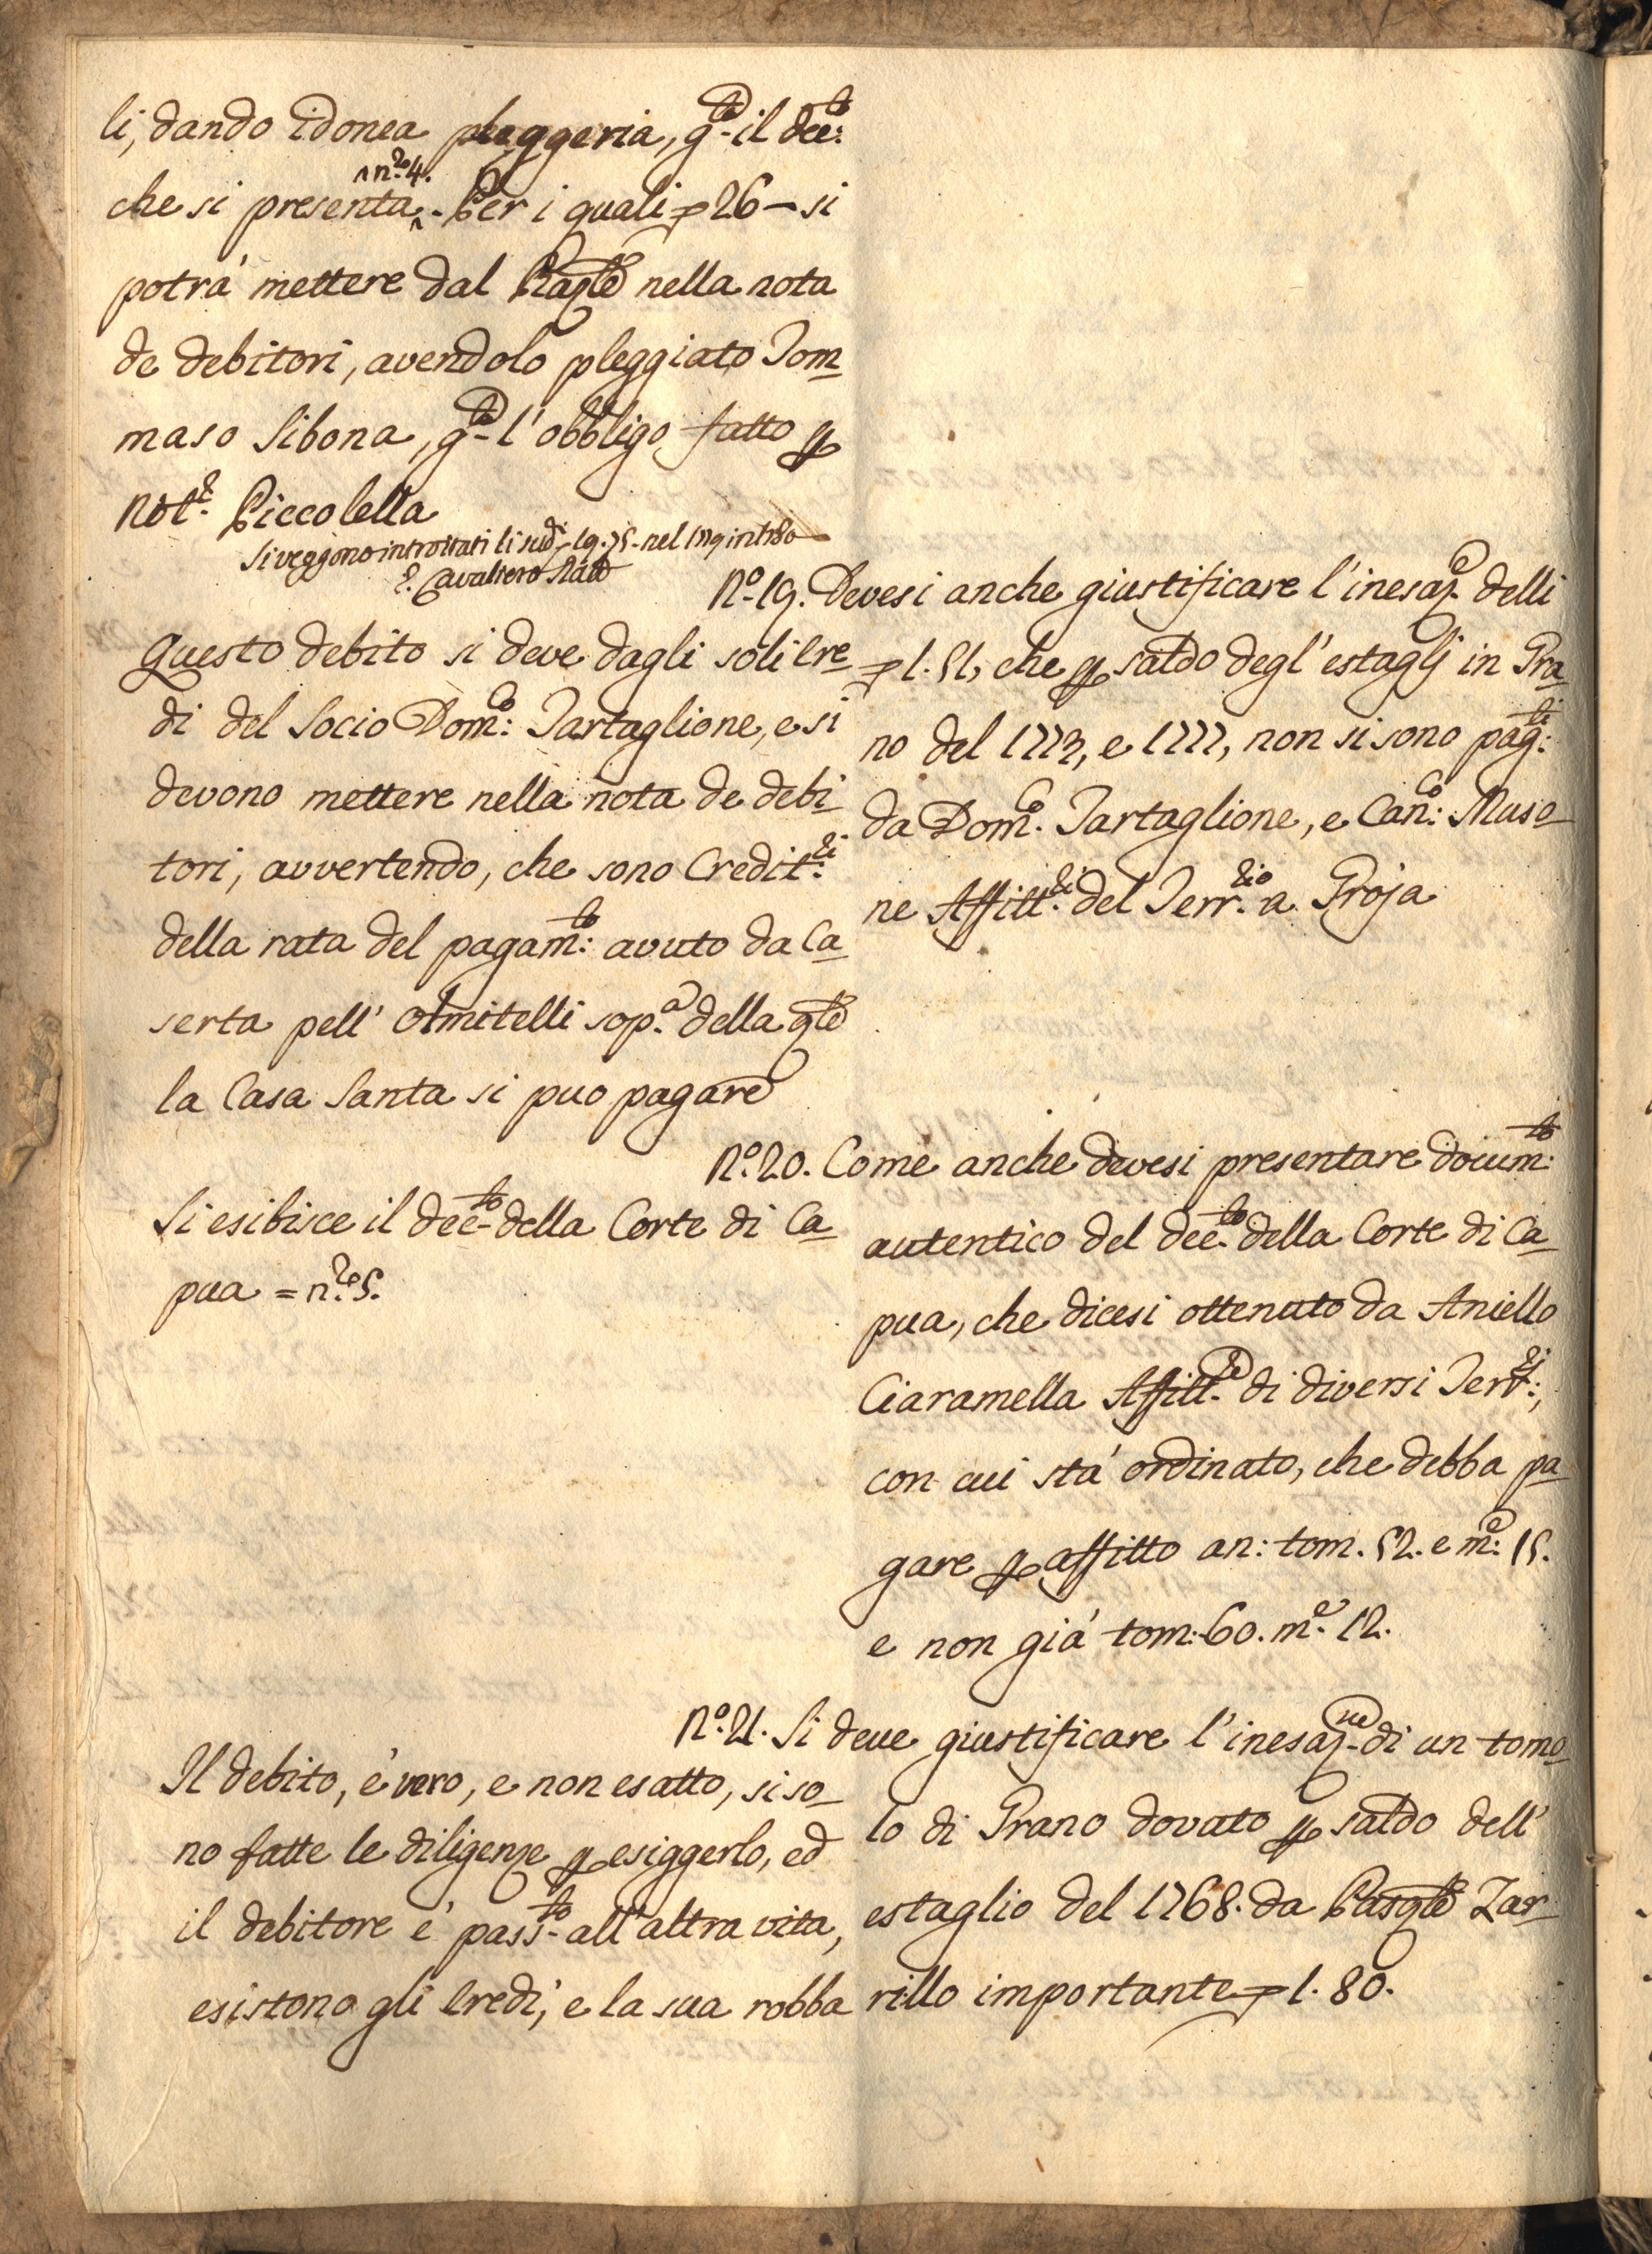 li, dando idonea pleggeria, g.ta il dec.to
n.ro 4.
che si presenta. Per i quali 26 – si
potrà mettere dal Raz.le nella nota
de debitori, avendolo pleggiato Tom-
maso Sibona, g.ta l'obbligo fatto per
Not.r Piccolella
Si veggono introitati li sud.i 19.75. nel 1779 in 1780
Cavaliero Raz.le
Questo debito si deve dagli soli Ere-
di del Socio Dom.co: Tartaglione, e si
devono mettere nella nota de debi-
tori, avvertendo, che sono Credit.ri
della rata del pagam.to: avuto da Ca-
serta pell' Olmitelli sop.a della q.le
la Casa Santa si puo pagare
Si esibisce il dec.to della Corte di Ca-
pua = n.ro 5.
Il debito, è vero, e non esatto, si so-
no fatte le diligenze per esiggerlo, ed
il debitore è pass.to all'altra vita,
esistono gli Eredi, e la sua robba
N.o 19. Devesi anche giustificare l'inesaz.e delli
1.51, che per saldo degl'estaglj in Gra-
no del 1773, e 1777, non si sono pag.ti:
da Dom.co Tartaglione, e Can.co: Muso-
ne Affitt.ri del Terr.rio a Troja
N.o 20. Come anche devesi presentare docum.to:
autentico del dec.to della Corte di Ca-
pua, che dicesi ottenuto da Aniello
Ciaramella Affitt.re di diversi Terr.rj:,
con cui stà ordinato, che debba pa-
gare per affitto an: tom. 52. e m.e: 15.
e non già tom: 60. m.e 12.
N.o 21. Si deve giustificare l'inesaz.ne di un tomo-
lo di Grano dovato per saldo dell'
estaglio del 1768. da Pasq.le Zar-
rillo importante 1.80.